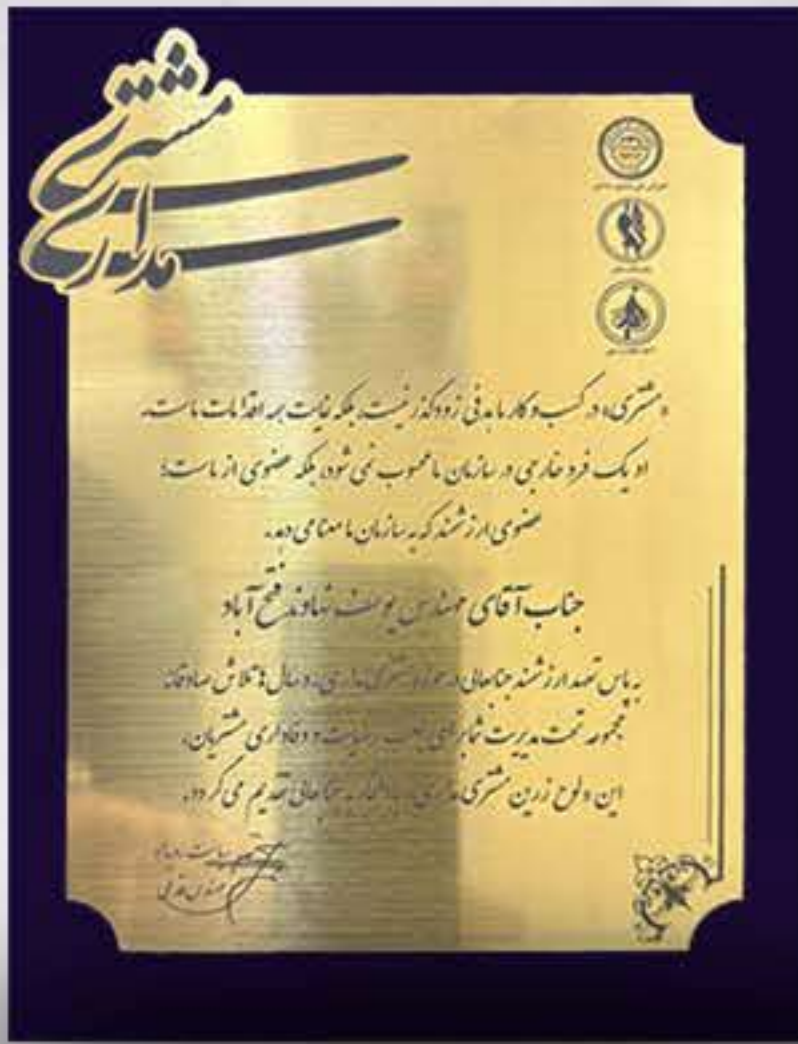 مشتری
مداری
«مشتری» در کسب و کار ما هدفی زودگذر نیست، بلکه غایت همه اقدامات ماست.
او یک فرد خارجی در سازمان ما محسوب نمی شود، بلکه عضوی از ماست؛
عضوی ارزشمند که به سازمان ما معنا می دهد.
جناب آقای مهندس یوسف نهاوند فتح آباد
به پاس تعهد ارزشمند جنابعالی در حوزه مشتری مداری، و سال ها تلاش صادقانه
مجموعه تحت مدیریت شما برای جلب رضایت و وفاداری مشتریان،
این «لوح زرین مشتری مداری» به جنابعالی تقدیم می گردد.